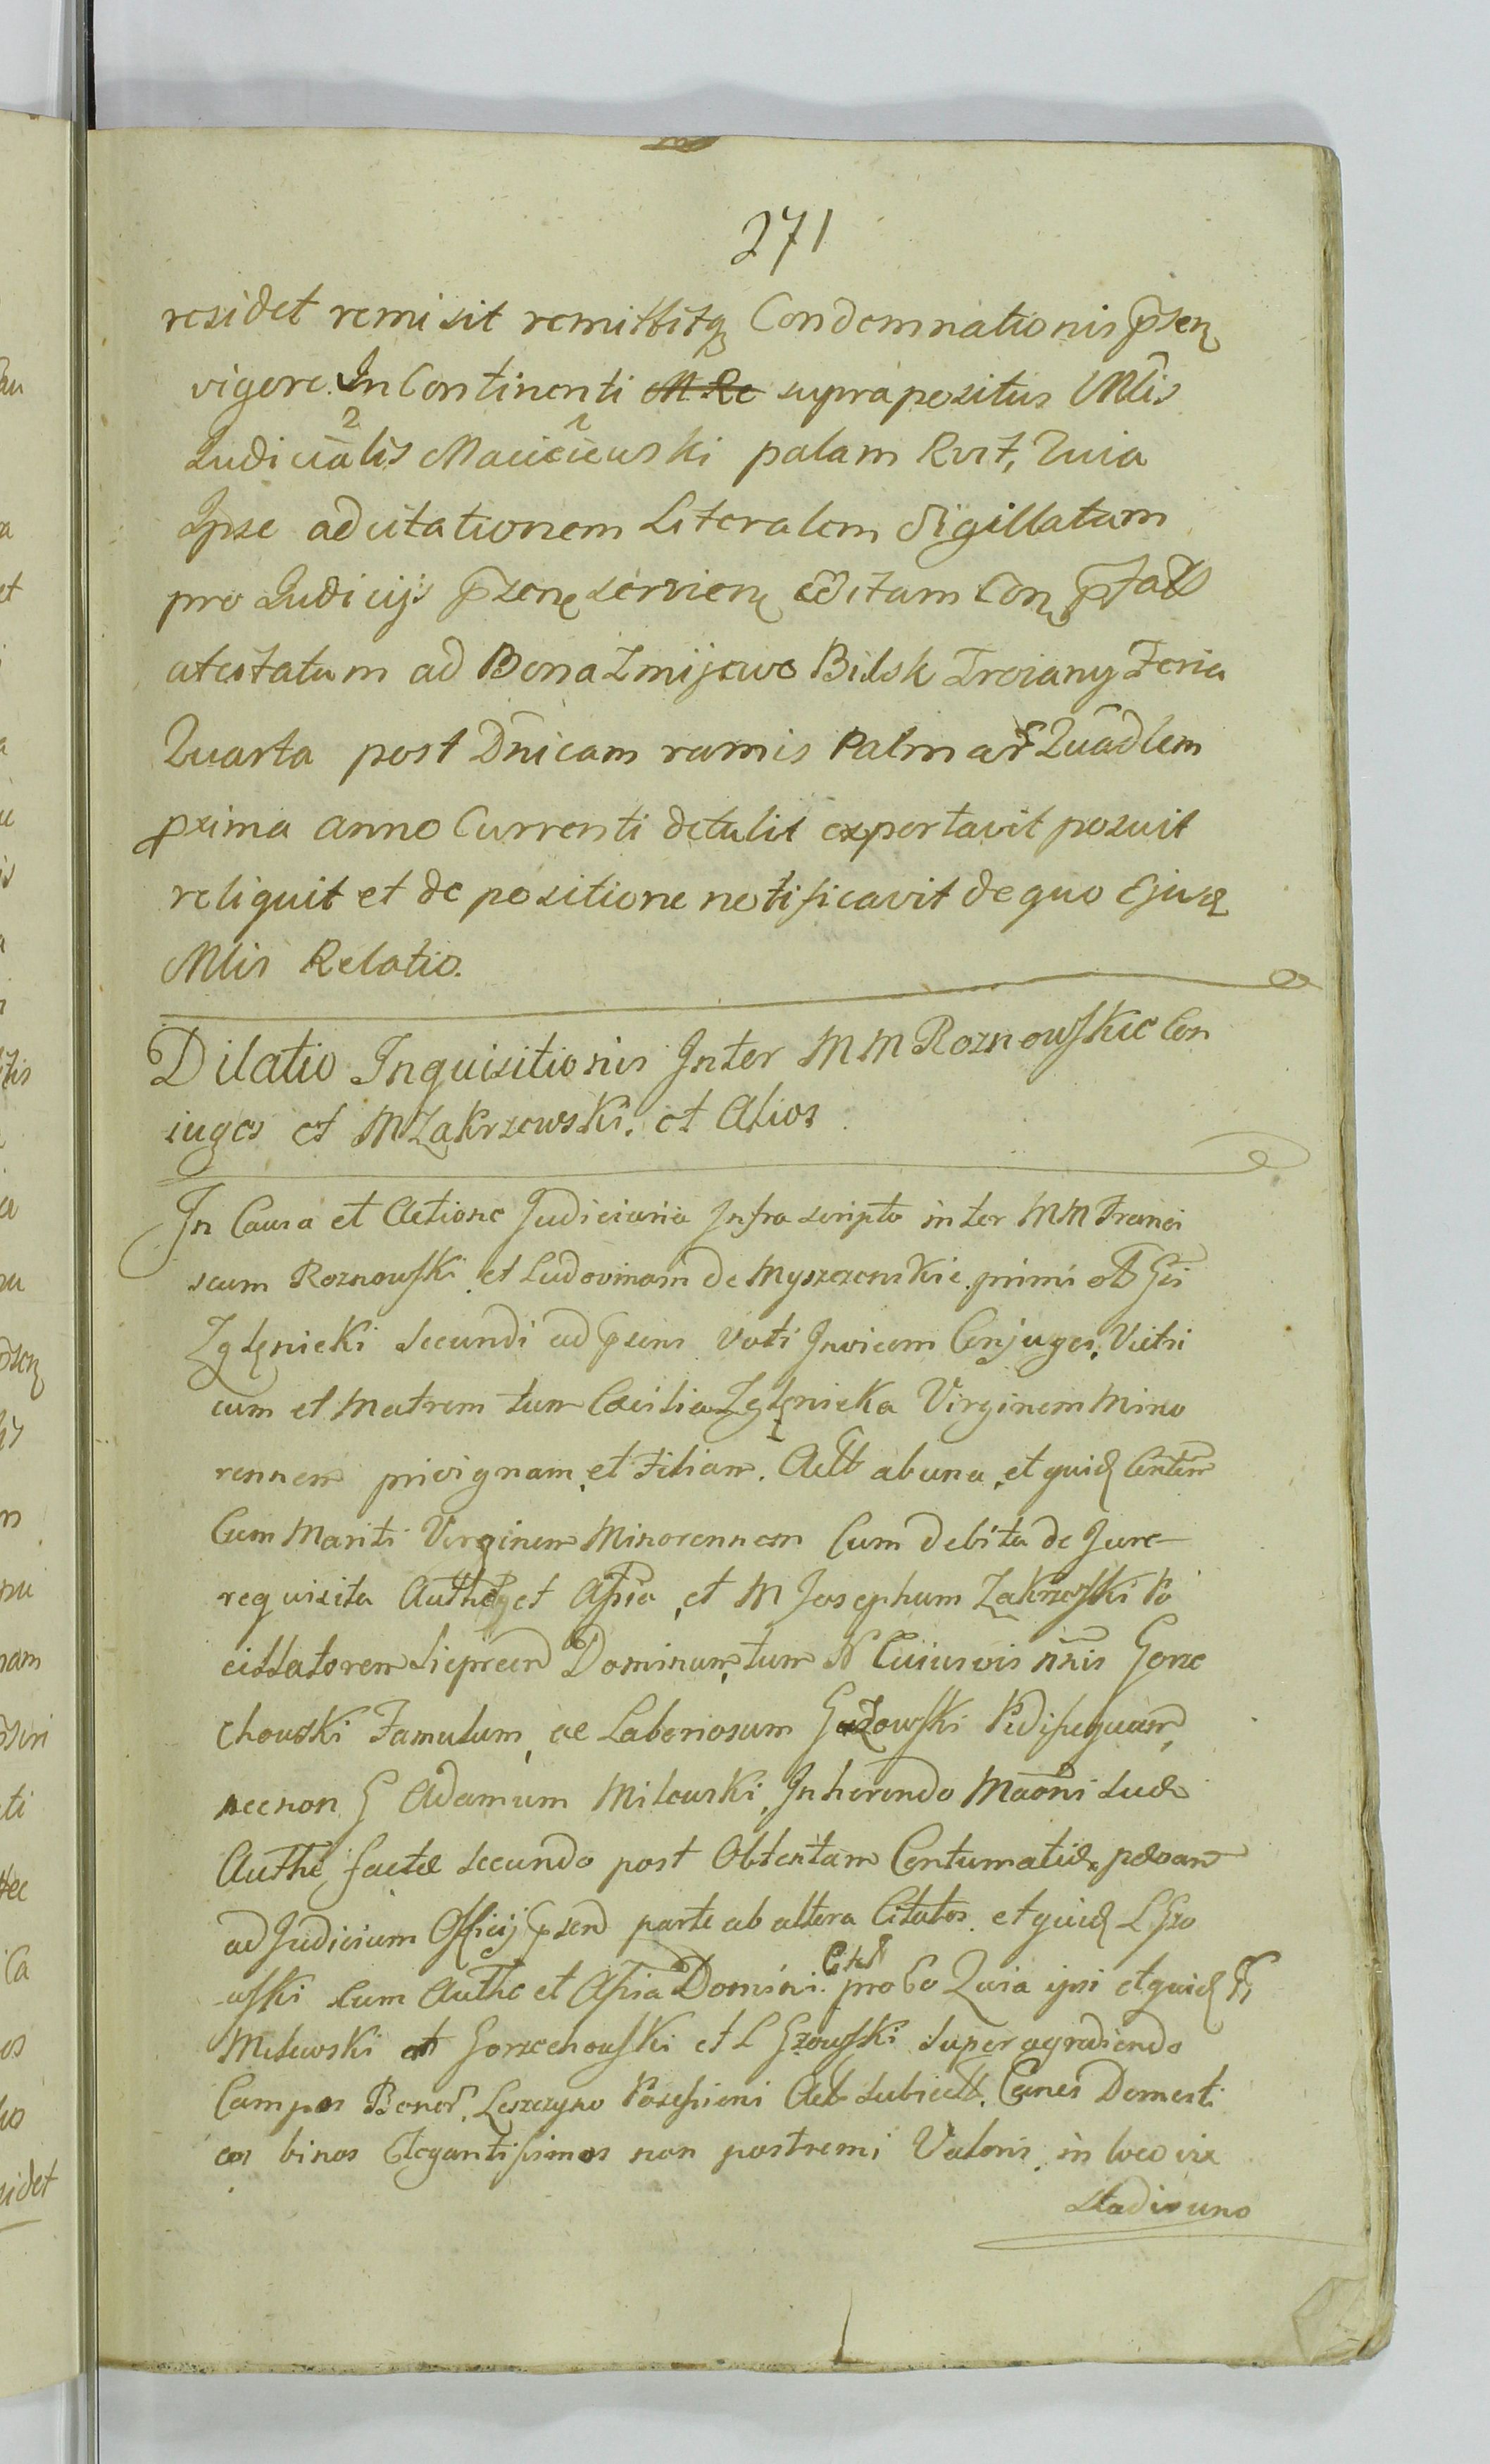 271
residet remisit remittitq Condemnationis p̄sen
vigore. In Continenti M Re supra positus Mlis
Judicialis Macieiewski palam Rvit, Quia
Ipse ad citationem Literalem Sigillatam
pro Judicijs p̄sen servien editam Con
atestatum ad Bona Zmijewo Bilsk Troiany Feria
Quarta post Dn̄icam ramis Palmar Quadlem
proxima anno Currenti detulit exportavit posuit
reliquit et de positione notificavit de quo Ejusd
Mlis Relatio.
Dilatio Inquisitionis Inter MM Roznowskie Con
iuges et M Zakrzewski et Alios
In Causa et Actione Judiciaria Infra scripta inter MM Franci
scum Roznowski et Ludovinam de Myszczenskie primi
Zglenicki secundi ad p̄sens voti Invicem Conjuges, Vitri
cum et Matrem tum Cæcilia Zglenicka Virginem Mino
rennem privignam et Filiam. Act ab una, et quid
Cum Mariti Virginem Minorennem Cum debita de Jure
requisita Auth et Assia et M Josephum Zakrzewski Po
cillatorem Dominum, tum N Cuiusvis n̄nis Gorze
chowski Famulum, ac Laboriosum Gzowski Pedissequam,
necnon G Adamum Milewski, Inherendo suæ
Authe factæ secundo post Obtentam Contumatiæ
ad Judicium Officij p̄sen parte ab altera Citatos et quid L Gzo
wski Cum Authe et Assia Domini Citat pro Eo Quia ipsi et quid
Milewski et Gorzechowski et L Gzowski super agradiendo
Campos Bonor Leszczyno Possessioni Act subiect. Canes Domesti
cos binos Elegantissimos non postremi Valoris in loco vix
stadio uno